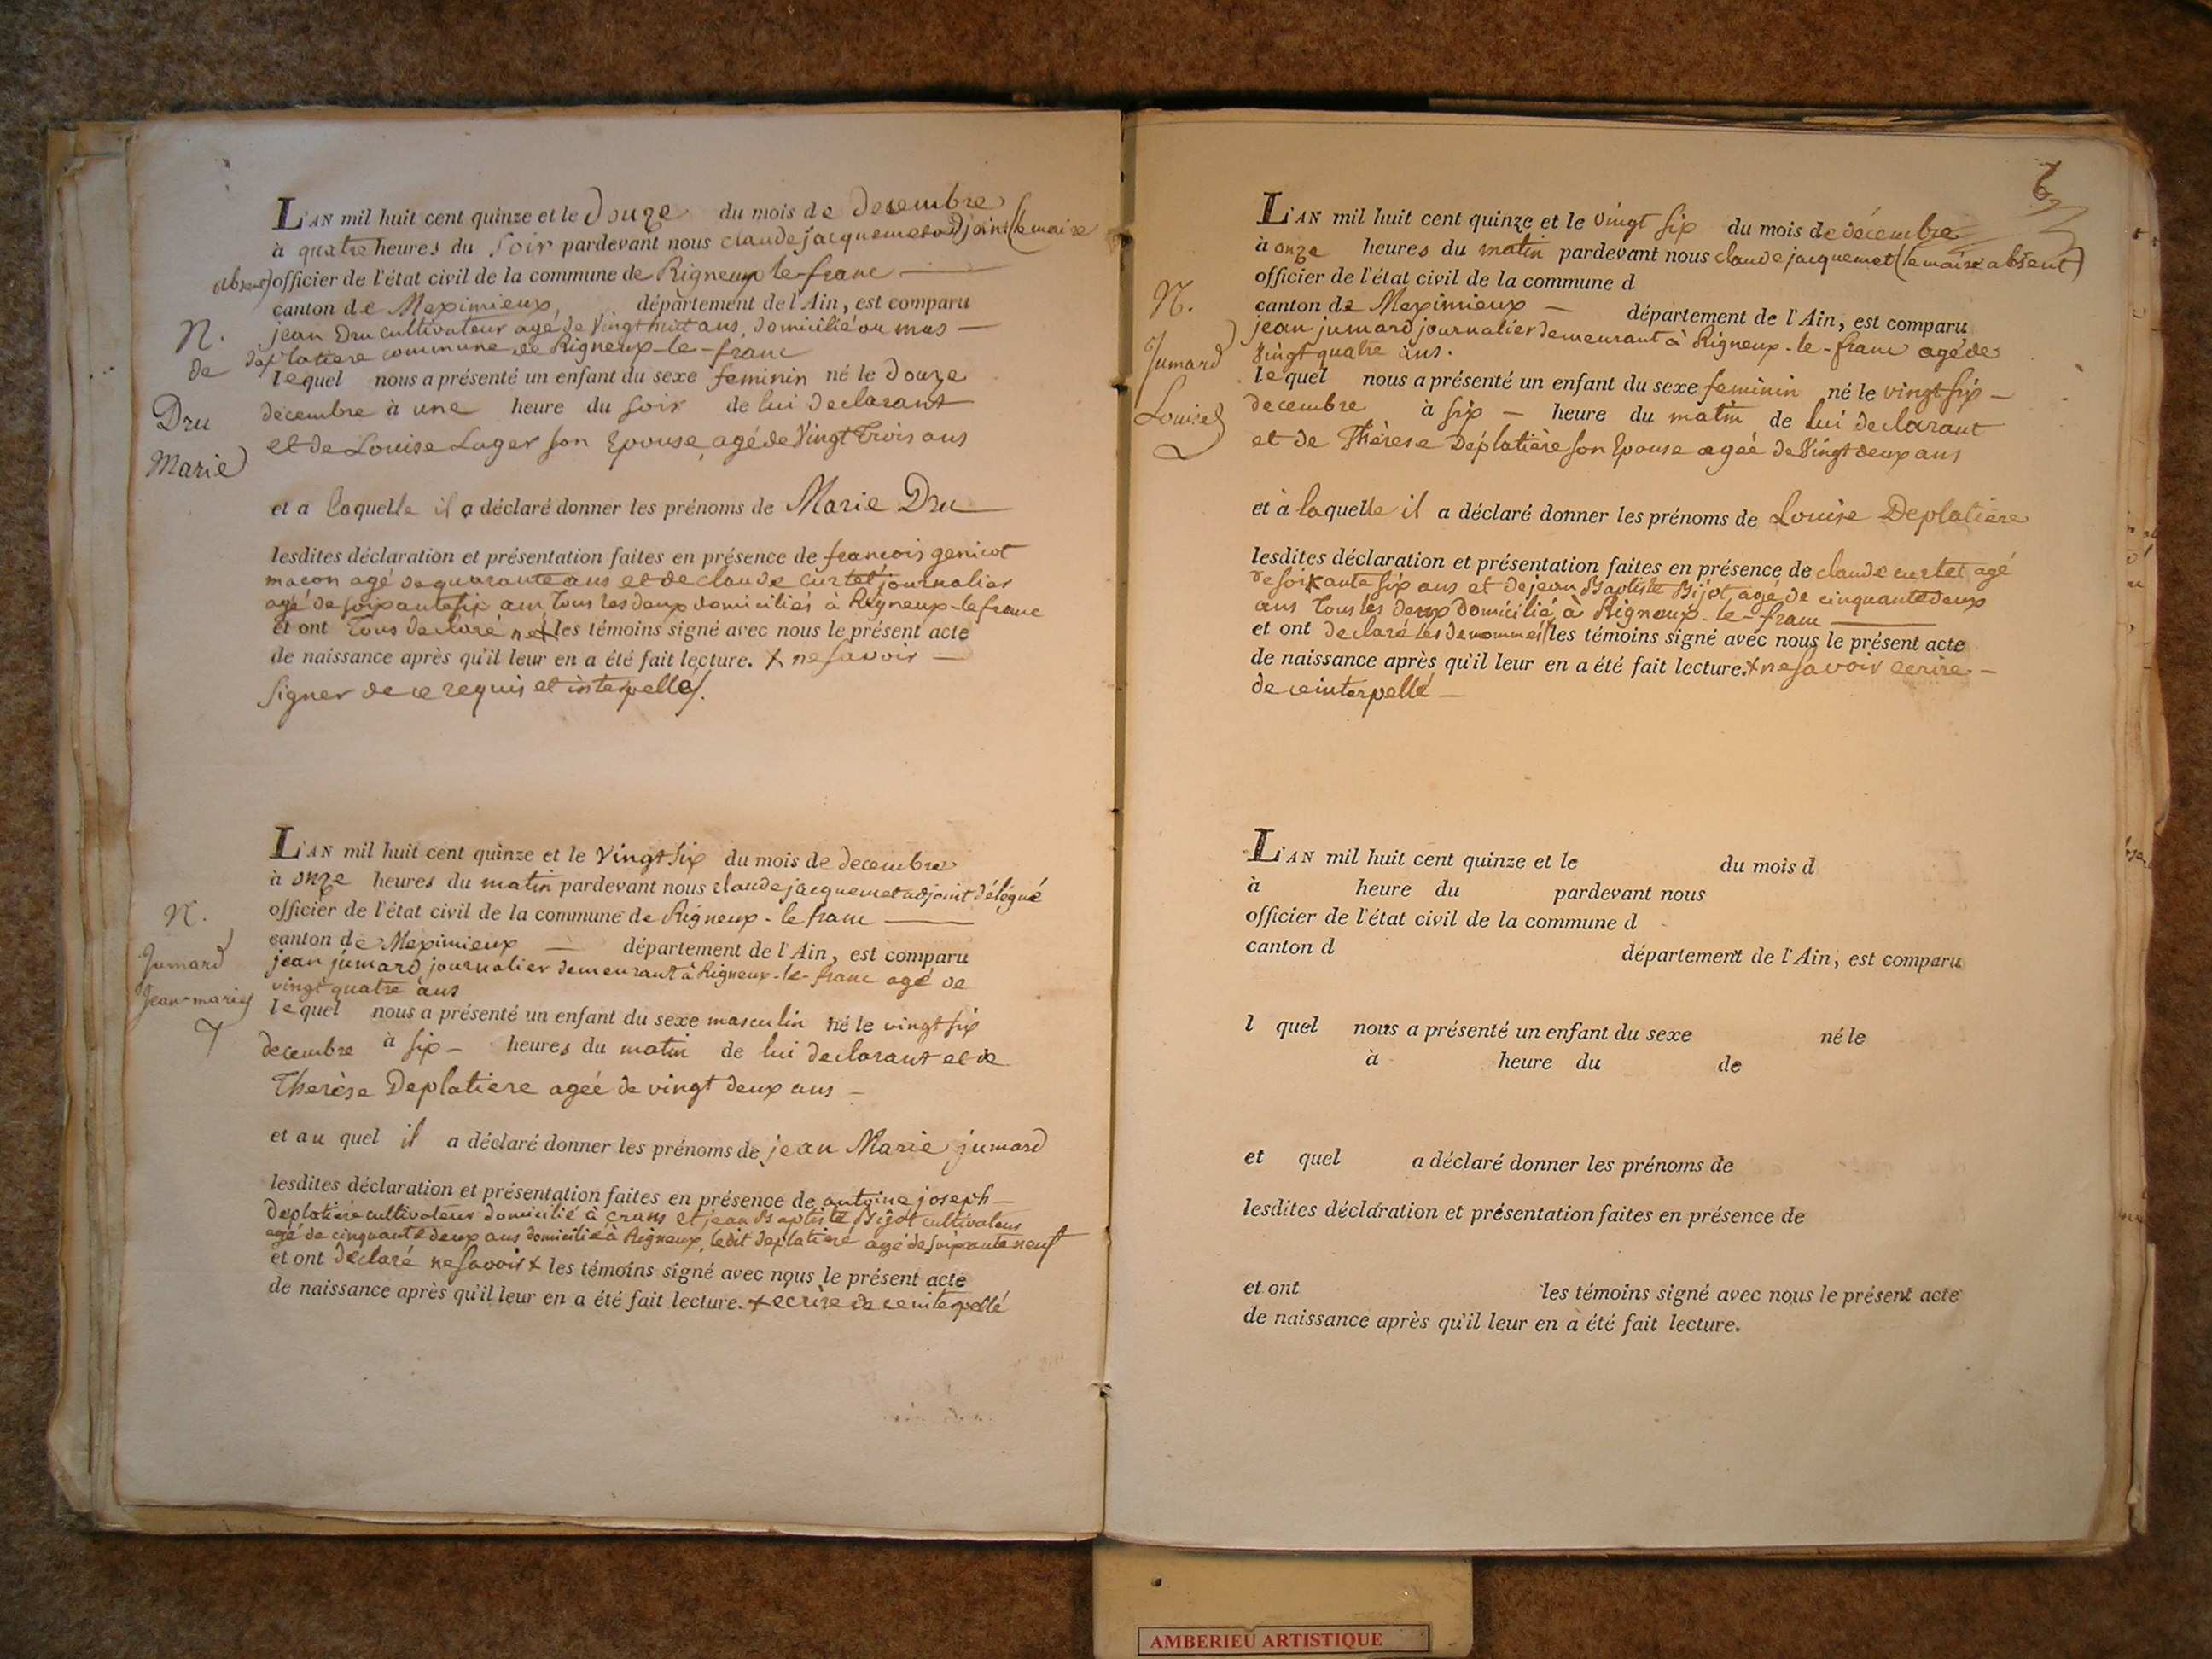 L'AN mil huit cent quinze et le douze du mois de decembre
à quatre heures du soir pardevant nous claude jacquemet adjoint (le maire
absent) officier de l'état civil de la commune de Rigneux le-franc
canton de Meximieux, département de l'Ain, est comparu
jean Dru cultivateur agé de vingt huit ans, domicilié au mas
deplatiere commune de Rigneux-le-franc
lequel nous a présenté un enfant du sexe feminin né le douze
decembre à une heure du soir de lui declarant
et de Louise Luger son Epouse, agé de vingt trois ans
et a laquelle il a déclaré donner les prénoms de Marie Dru
lesdites déclaration et présentation faites en présence de francois genicot
macon agé de quarante ans et de claude curtet journalier
agé de soixante six ans tous les deux domiciliés à Rigneux-le franc
et ont tous declaré x les témoins signé avec nous le présent acte
de naissance après qu'il leur en a été fait lecture. x ne savoir
signer de ce requis et interpellés.
N.
de
Dru
Marie
L'AN mil huit cent quinze et le vingt six du mois de decembre
à onze heures du matin pardevant nous claude jacquemet adjoint délégué
officier de l'état civil de la commune de Rigneux-le franc
canton de Meximieux département de l'Ain, est comparu
jean jumard journalier demeurant à Rigneux-le-franc agé de
vingt quatre ans
lequel nous a présenté un enfant du sexe masculin né le vingt six
decembre à six heures du matin de lui declarant et de
Therèse Deplatiere ageé de vingt deux ans
et au quel il a déclaré donner les prénoms de jean Marie jumard
lesdites déclaration et présentation faites en présence de antoine joseph
Deplatiere cultivateur domicilié à crans et jean Baptiste Bijot cultivateur
agé de cinquante deux ans domicilié à Rigneux, ledit deplatiere agé de soixante neuf
et ont déclaré ne savoir x les témoins signé avec nous le présent acte
de naissance après qu'il leur en a été fait lecture. x ecrire de ce interpellé
N.
Jumard
Jean-marie
L'AN mil huit cent quinze et le vingt six du mois de décembre
à onze heures du matin pardevant nous claude jacquemet (le maire absent)
officier de l'état civil de la commune d
canton de Meximieux département de l'Ain, est comparu
jean jumard journalier demeurant à Rigneux-le-franc agé de
vingt quatre ans.
lequel nous a présenté un enfant du sexe feminin né le vingt six
decembre à six heure du matin de lui declarant
et de Thèrese Deplatière son Epouse ageé de vingt deux ans
et à laquelle il a déclaré donner les prénoms de Louise Deplatiere
lesdites déclaration et présentation faites en présence de claude curtet agé
de soixante six ans et de jean Baptiste Bijot agé de cinquante deux
ans tous les deux domicilié à Rigneux-le-franc
et ont declaré les denommés x les témoins signé avec nous le présent acte
de naissance après qu'il leur en a été fait lecture. x ne savoir ecrire
de ce interpellé
N.
Jumard
Louise
L'AN mil huit cent quinze et le du mois d
à heure du pardevant nous
officier de l'état civil de la commune d
canton d département de l'Ain, est comparu
l quel nous a présenté un enfant du sexe né le
à heure du de
et quel a déclaré donner les prénoms de
lesdites déclaration et présentation faites en présence de
et ont les témoins signé avec nous le présent acte
de naissance après qu'il leur en a été fait lecture.
AMBERIEU ARTISTIQUE